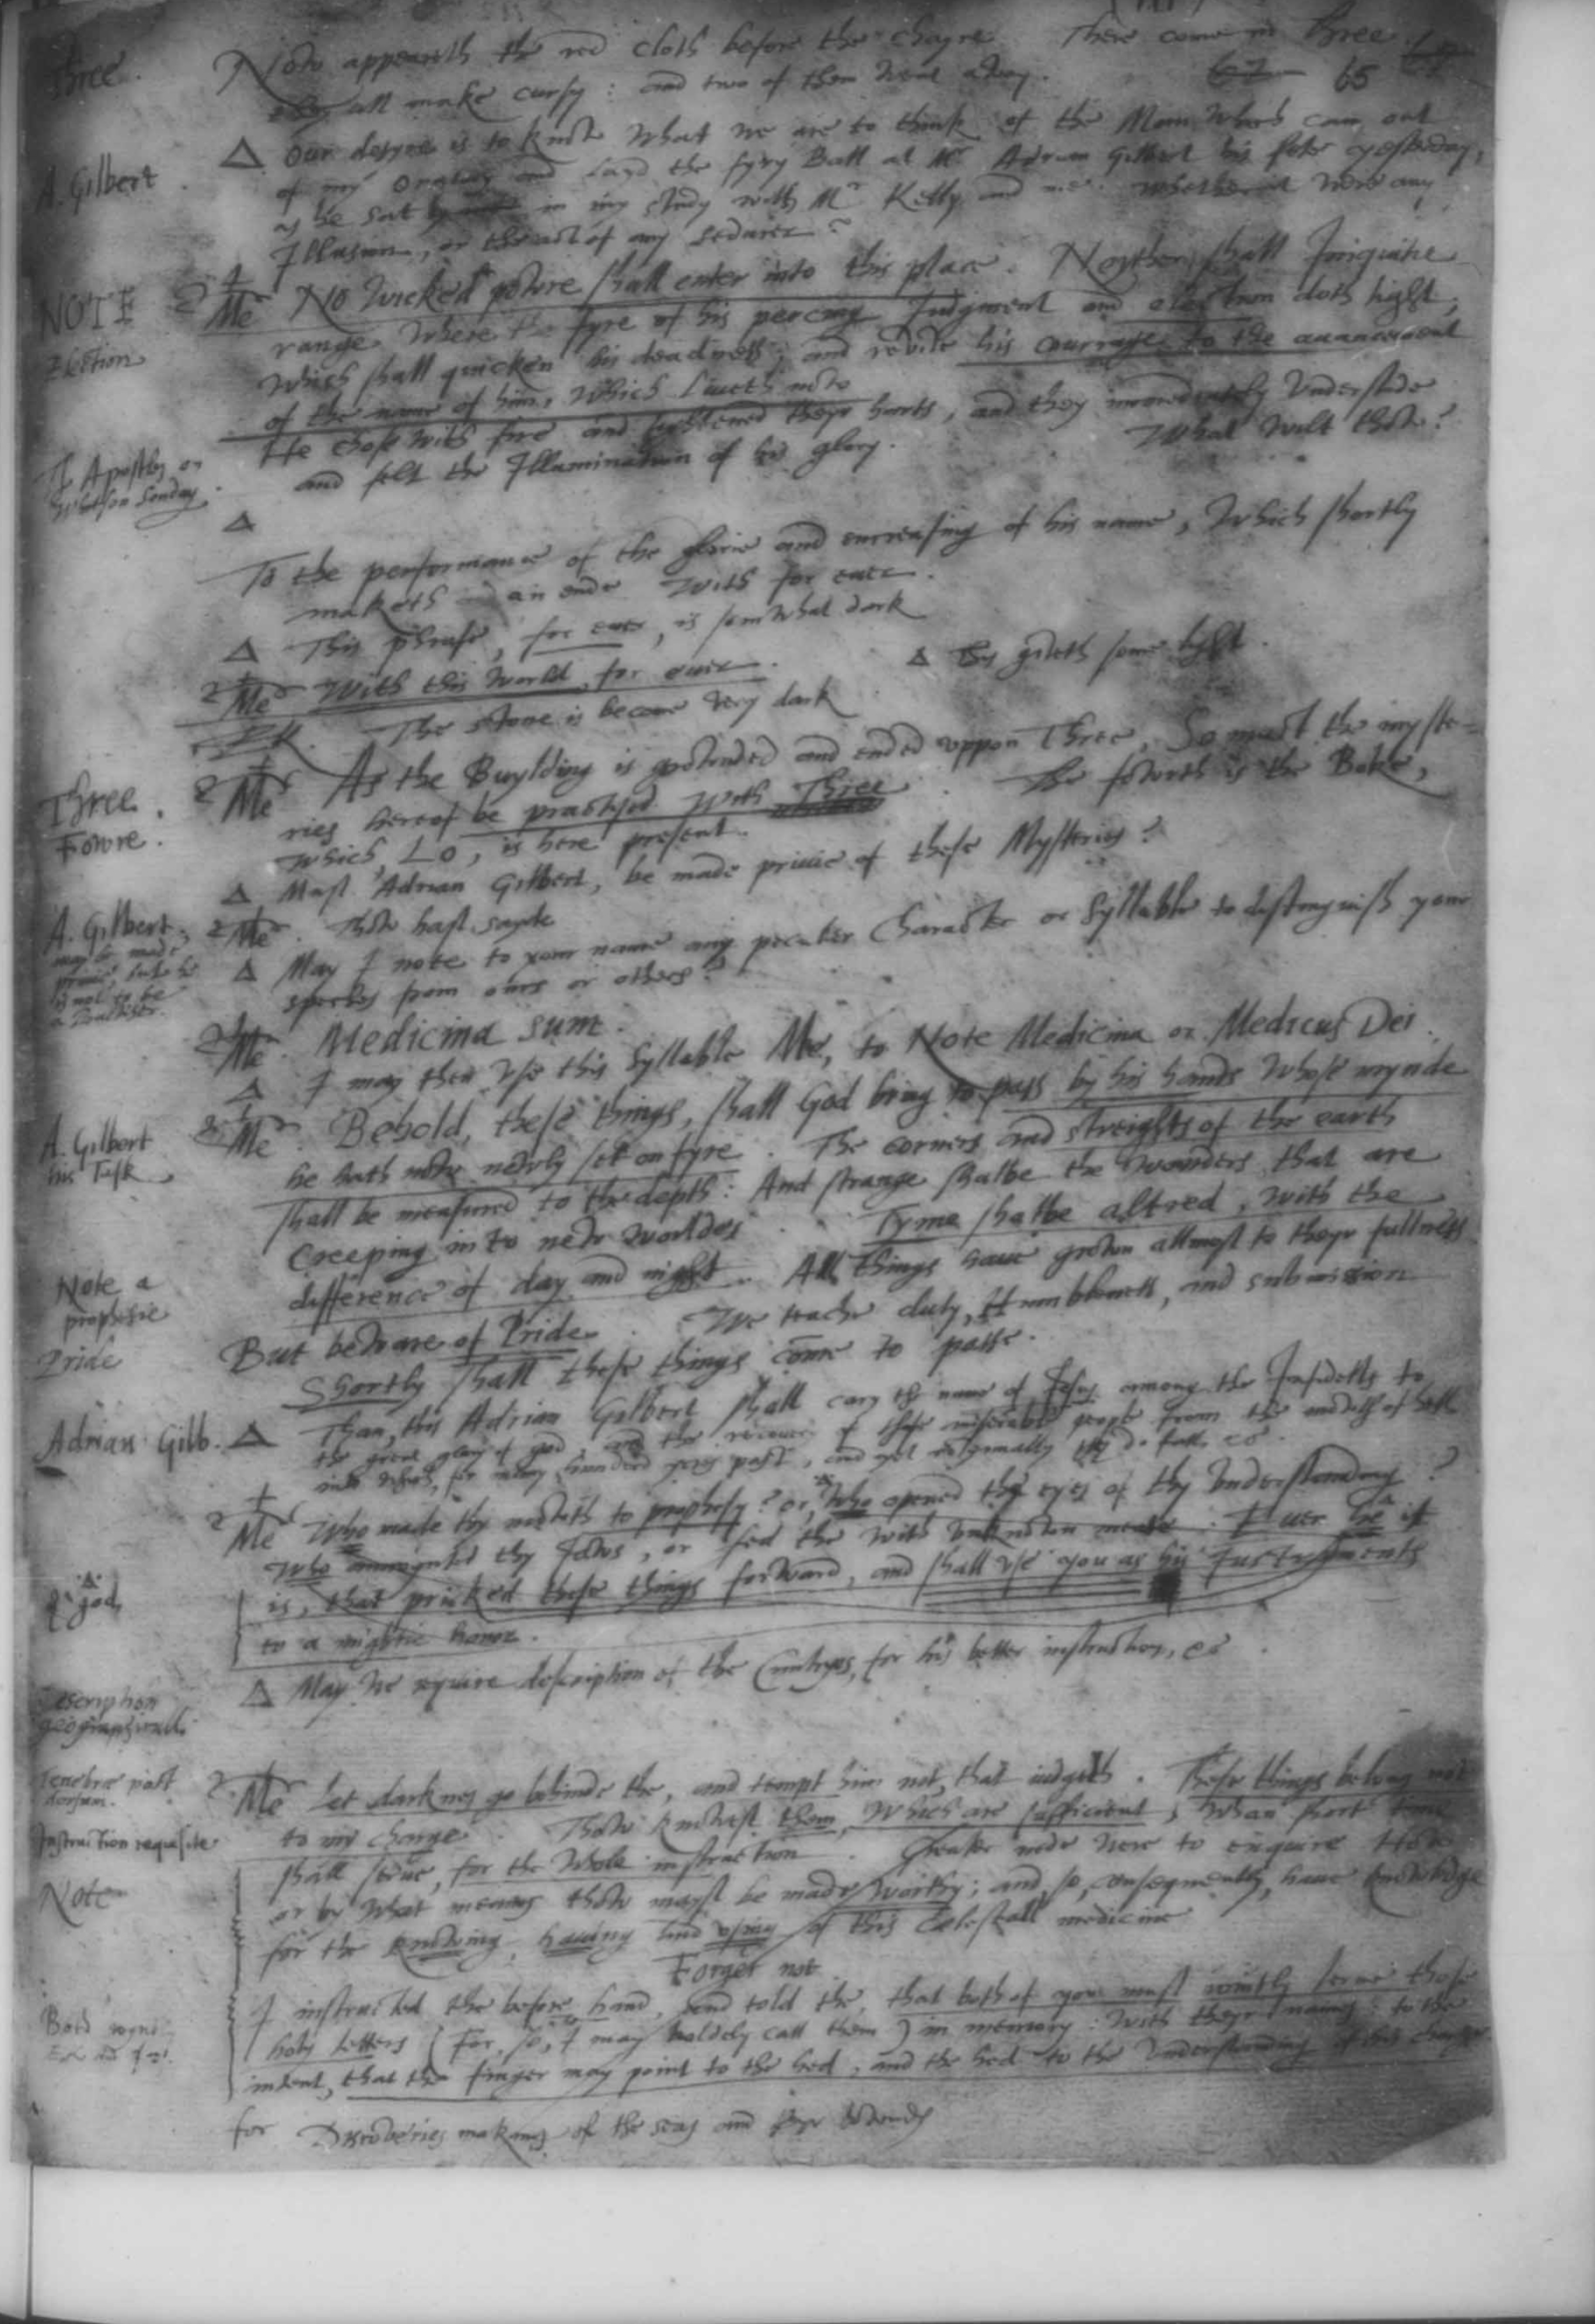 Three.
Now appeareth the red cloth before the chayre. There come in three.
they all make cursy: and two of them went away. 65
A. Gilbert.
Δ Our desyre is to know what we are to think of the Man which cam out
of my Oratory and layd the fyry Ball at Mr Adrian Gilbert his fete yesterday,
as he sat in my study with Mr Kelly and me: whether it were any
Illusion, or the act of any seducer?
NOTE
Election
Me No wicked powre shall enter into this place. Neyther shall Iniquitie
range where the fyre of his percing Judgment and election doth light,
which shall quicken his deadness; and revive his courrage to the avancement
of the name of him, which liueth now
The Apostles on
Whitson Sonday.
He chose with fire and lightened theyr harts, and they immediately Understode
and felt the Illumination of his glory. What wilt thow?
Δ
To the performance of the glorie and encreasing of his name, which shortly
maketh an ende with for euer.
Δ This phrase, for euer, is somwhat dark
Me With this world, for euer. Δ This giueth some light.
EK. The stone is become very dark
Three.
Fowre.
Me As the Buylding is grownded and ended vppon Three, So must the myste-
ries hereof be practised with Three. The fowrth is the Boke,
which, Lo, is here present.
Δ Must Adrian Gilbert, be made priuie of these Mysteries?
A. Gilbert,
may be made
priuie, but he
is not to be
a Practiser.
Me. Thow hast sayde
Δ May I note to your name any peculier Character or syllable to distinguish your
speches from ours or others?
Me. Medicina sum.
Δ I may then vse this syllable Me, to Note Medicina or Medicus Dei.
A. Gilbert
his Task
Me. Behold, these things, shall God bring to pass by his hands whose mynde
he hath now newly set on fyre. The corners and streights of the earth
shall be measured to the depth: And strange shalbe the wonders that are
Creeping in to new worldes. Tyme shalbe altred, with the
difference of day and night. All things haue grown allmost to theyr fullness
Note a
prophesie
Pride
But beware of Pride. We teache duty, Humbleness, and submission
Shortly shall these things come to passe.
Adrian Gilb.
Δ Than, this Adrian Gilbert shall cary the name of Jesus among the Infidells to
the great glory of god, and the recouery of those miserable people from the mowth of hell
into which, for many hundred yeres past, and yet contynually they do fall, &c.
Me Who made thy mowth to prophesy? or, Who opened the eyes of thy Understanding?
Who annoynted thy Jaws, or fed the with vnknown meate. Euer he it
is, that pricked these things forward, and shall vse you as his Instruments
to a mightie honor.
Δ
god,
Δ May we require description of the Cuntryes, for his better instruction, &c.
Description
geographicall.
Tenebræ post
dorsum.
Me Let darknes go behinde the, and tempt him not, that iudgeth. These things belong not
to my charge. Thow knowest them, which are sufficient, whan short tyme
Instruction requisite.
shall serue, for the whole instruction. Greater nede were to enquire How
Note
or by what meanes thow mayst be made worthy; and, so, consequently, haue knowledge
for the knowing, hauing and vsing of this cælestiall medicine
Forget not.
Both
I instructed the before hand, and told the, that both of you must iointly lerne those
holy letters (For, so, I may boldely call them) in memory: with theyr names: to the
intent, that the finger may point to the hed, and the hed to the Understanding of his charge
for Discoueries making of the seas and theyr bownds